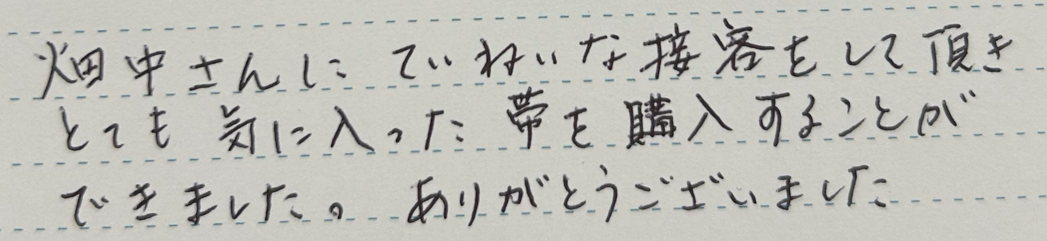 畑中さんに ていねいな接客をして頂き
とても 気に入った 帯を 購入することが
できました。 ありがとうございました